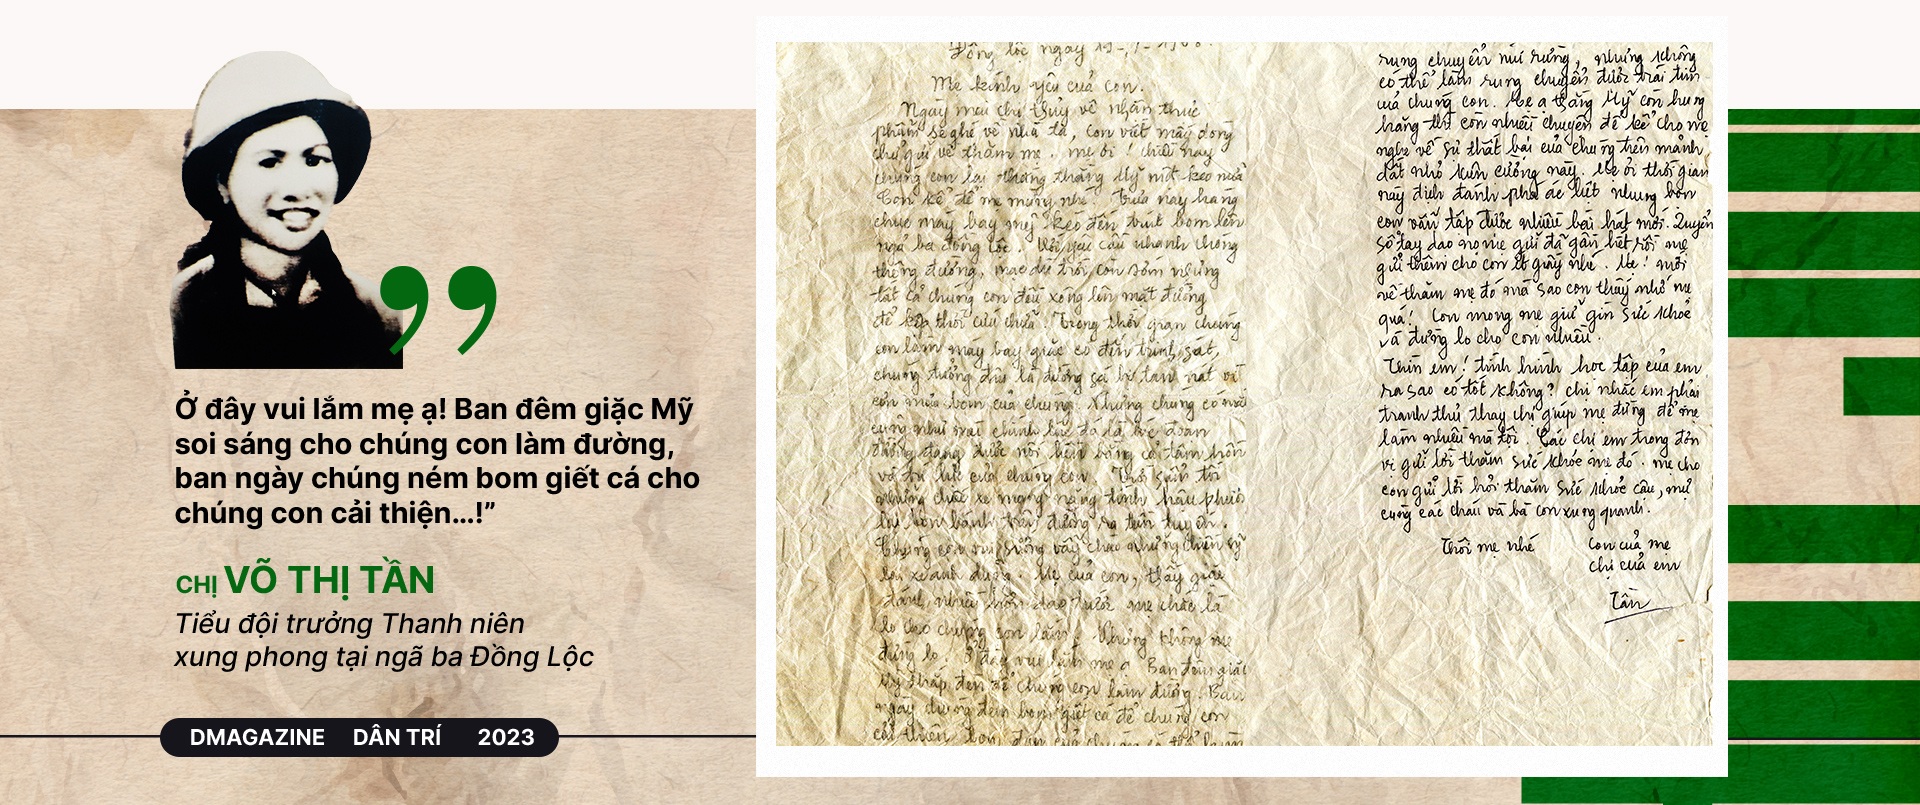 Ở đây vui lắm mẹ ạ! Ban đêm giặc Mỹ
soi sáng cho chúng con làm đường,
ban ngày chúng ném bom giết cá cho
chúng con cải thiện...!”
CHỊ VÕ THỊ TẦN
Tiểu đội trưởng Thanh niên
xung phong tại ngã ba Đồng Lộc
DMAGAZINE DÂN TRÍ 2023
Đồng lộc ngày
Mẹ kính yêu của con.
Ngày mai chị Thủy về nhận thực
phẩm sẽ ghé về nhà ta, con viết mấy dòng
chữ gửi về thăm mẹ. mẹ ơi! chiều nay
chúng con lại thắng thằng Mỹ một keo nữa
Con kể để mẹ mừng nhé. Trưa nay hàng
chục máy bay mỹ kéo đến trút bom lên
ngã ba đồng lộc. Với yêu cầu nhanh chóng
thông đường, mặc dù trời còn sớm nhưng
tất cả chúng con đều xông lên mặt đường
để kịp thời cứu chữa. Trong thời gian chúng
con làm máy bay giặc có đến trinh sát,
chúng tưởng đâu là đường sẽ bị tan nát vì
cơn mưa bom của chúng. Nhưng chúng có
cũng như
đường đang được nối liền bằng cả tâm hồn
và của chúng con. Trời
những xe mang nặng tình hậu phương
lại lăn bánh trên đường ra tiền tuyến.
Chúng con vui sướng vẫy chào những chiến sỹ
lái xe anh dũng. Mẹ của con, thấy giặc
đánh nhiều hơn dạo trước mẹ chắc là
lo cho chúng con lắm. Nhưng không mẹ
đừng lo, ở đây vui lắm mẹ ạ. Ban đêm giặc
Mỹ thắp đèn để chúng con làm đường. Ban
ngày chúng đem bom giết cá để chúng con
cải thiện
rung chuyển núi rừng, nhưng không
có thể làm rung chuyển được trái tim
của chúng con. Mẹ ạ thằng Mỹ còn hung
hăng thì còn nhiều chuyện để kể cho mẹ
nghe về sự thất bại của chúng trên mảnh
đất nhỏ kiên cường này. Mẹ ơi thời gian
này địch đánh phá ác liệt nhưng bọn
con vẫn tập được nhiều bài hát mới. Quyển
sổ tay dạo nọ mẹ gửi đã gần hết rồi mẹ
gửi thêm cho con ít giấy nhé. Mẹ! mới
về thăm mẹ đó mà sao con thấy nhớ mẹ
quá! Con mong mẹ giữ gìn sức khỏe
và đừng lo cho con nhiều.
Thìn em! tình hình học tập của em
ra sao có tốt không? chị nhắc em phải
tranh thủ thay chị giúp mẹ đừng để mẹ
làm nhiều mà tội. Các chị em trong đơn
vị gửi lời thăm sức khỏe mẹ đó. mẹ cho
con gửi lời hỏi thăm sức khỏe cậu, mự
cùng các cháu và bà con xung quanh.
Thôi mẹ nhé
Con của mẹ
chị của em
Tần